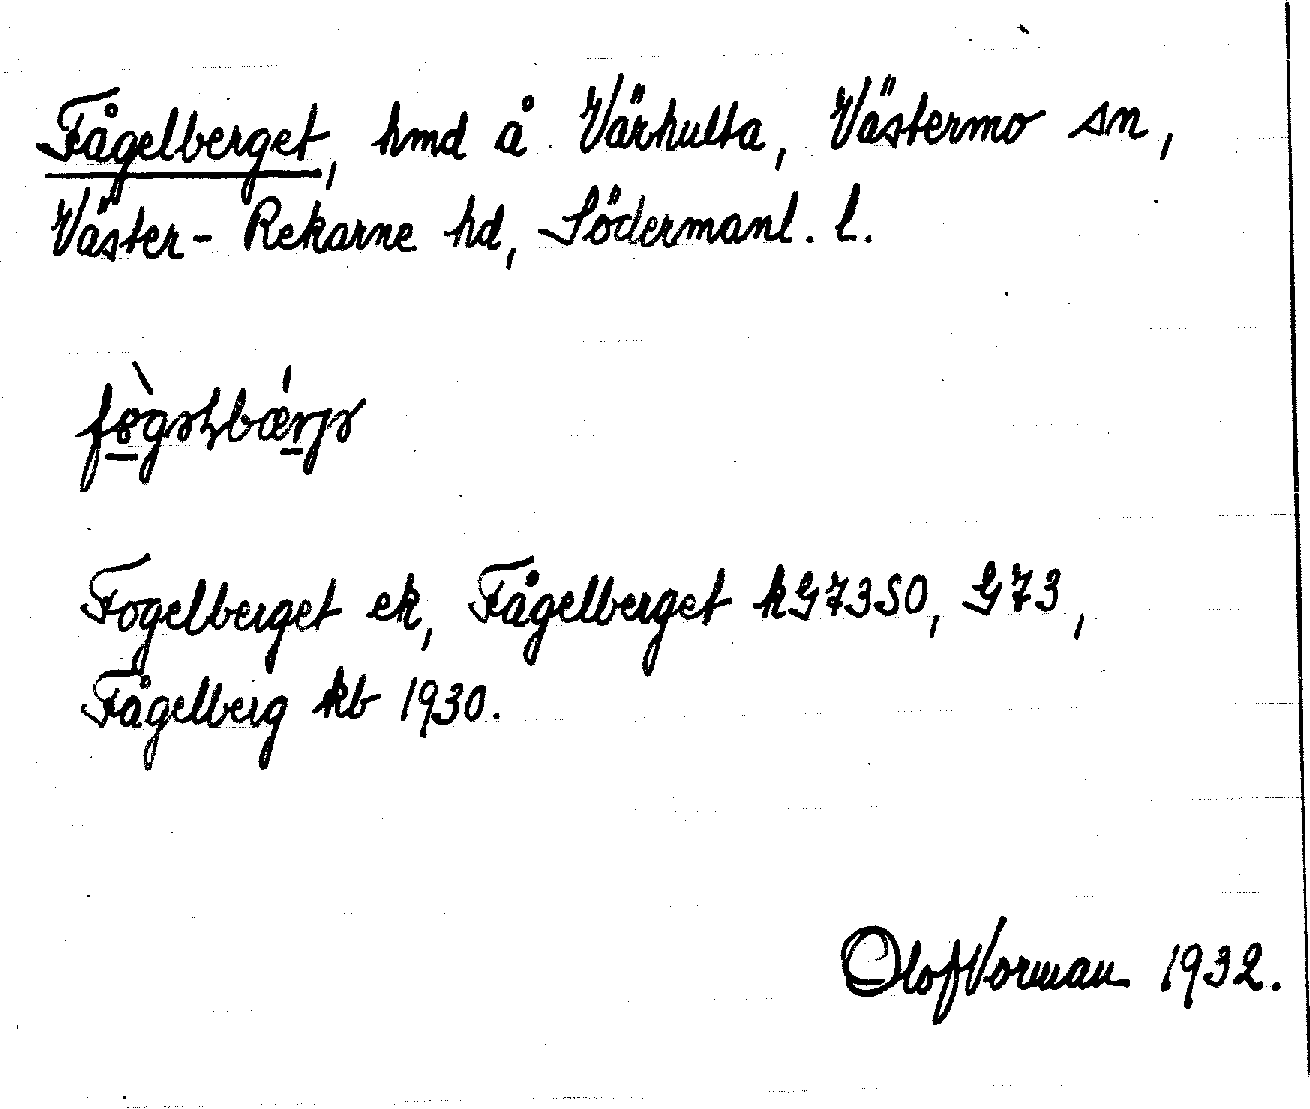 Fågelberget, hmd å Värhulta, Västermo sn,
Väster-Rekarne hd, Södermanl. l.
Fogelberget ek, Fågelberget kG73SO, G73,
Fågelberg kb 1930.
Olof Vorman 1932.